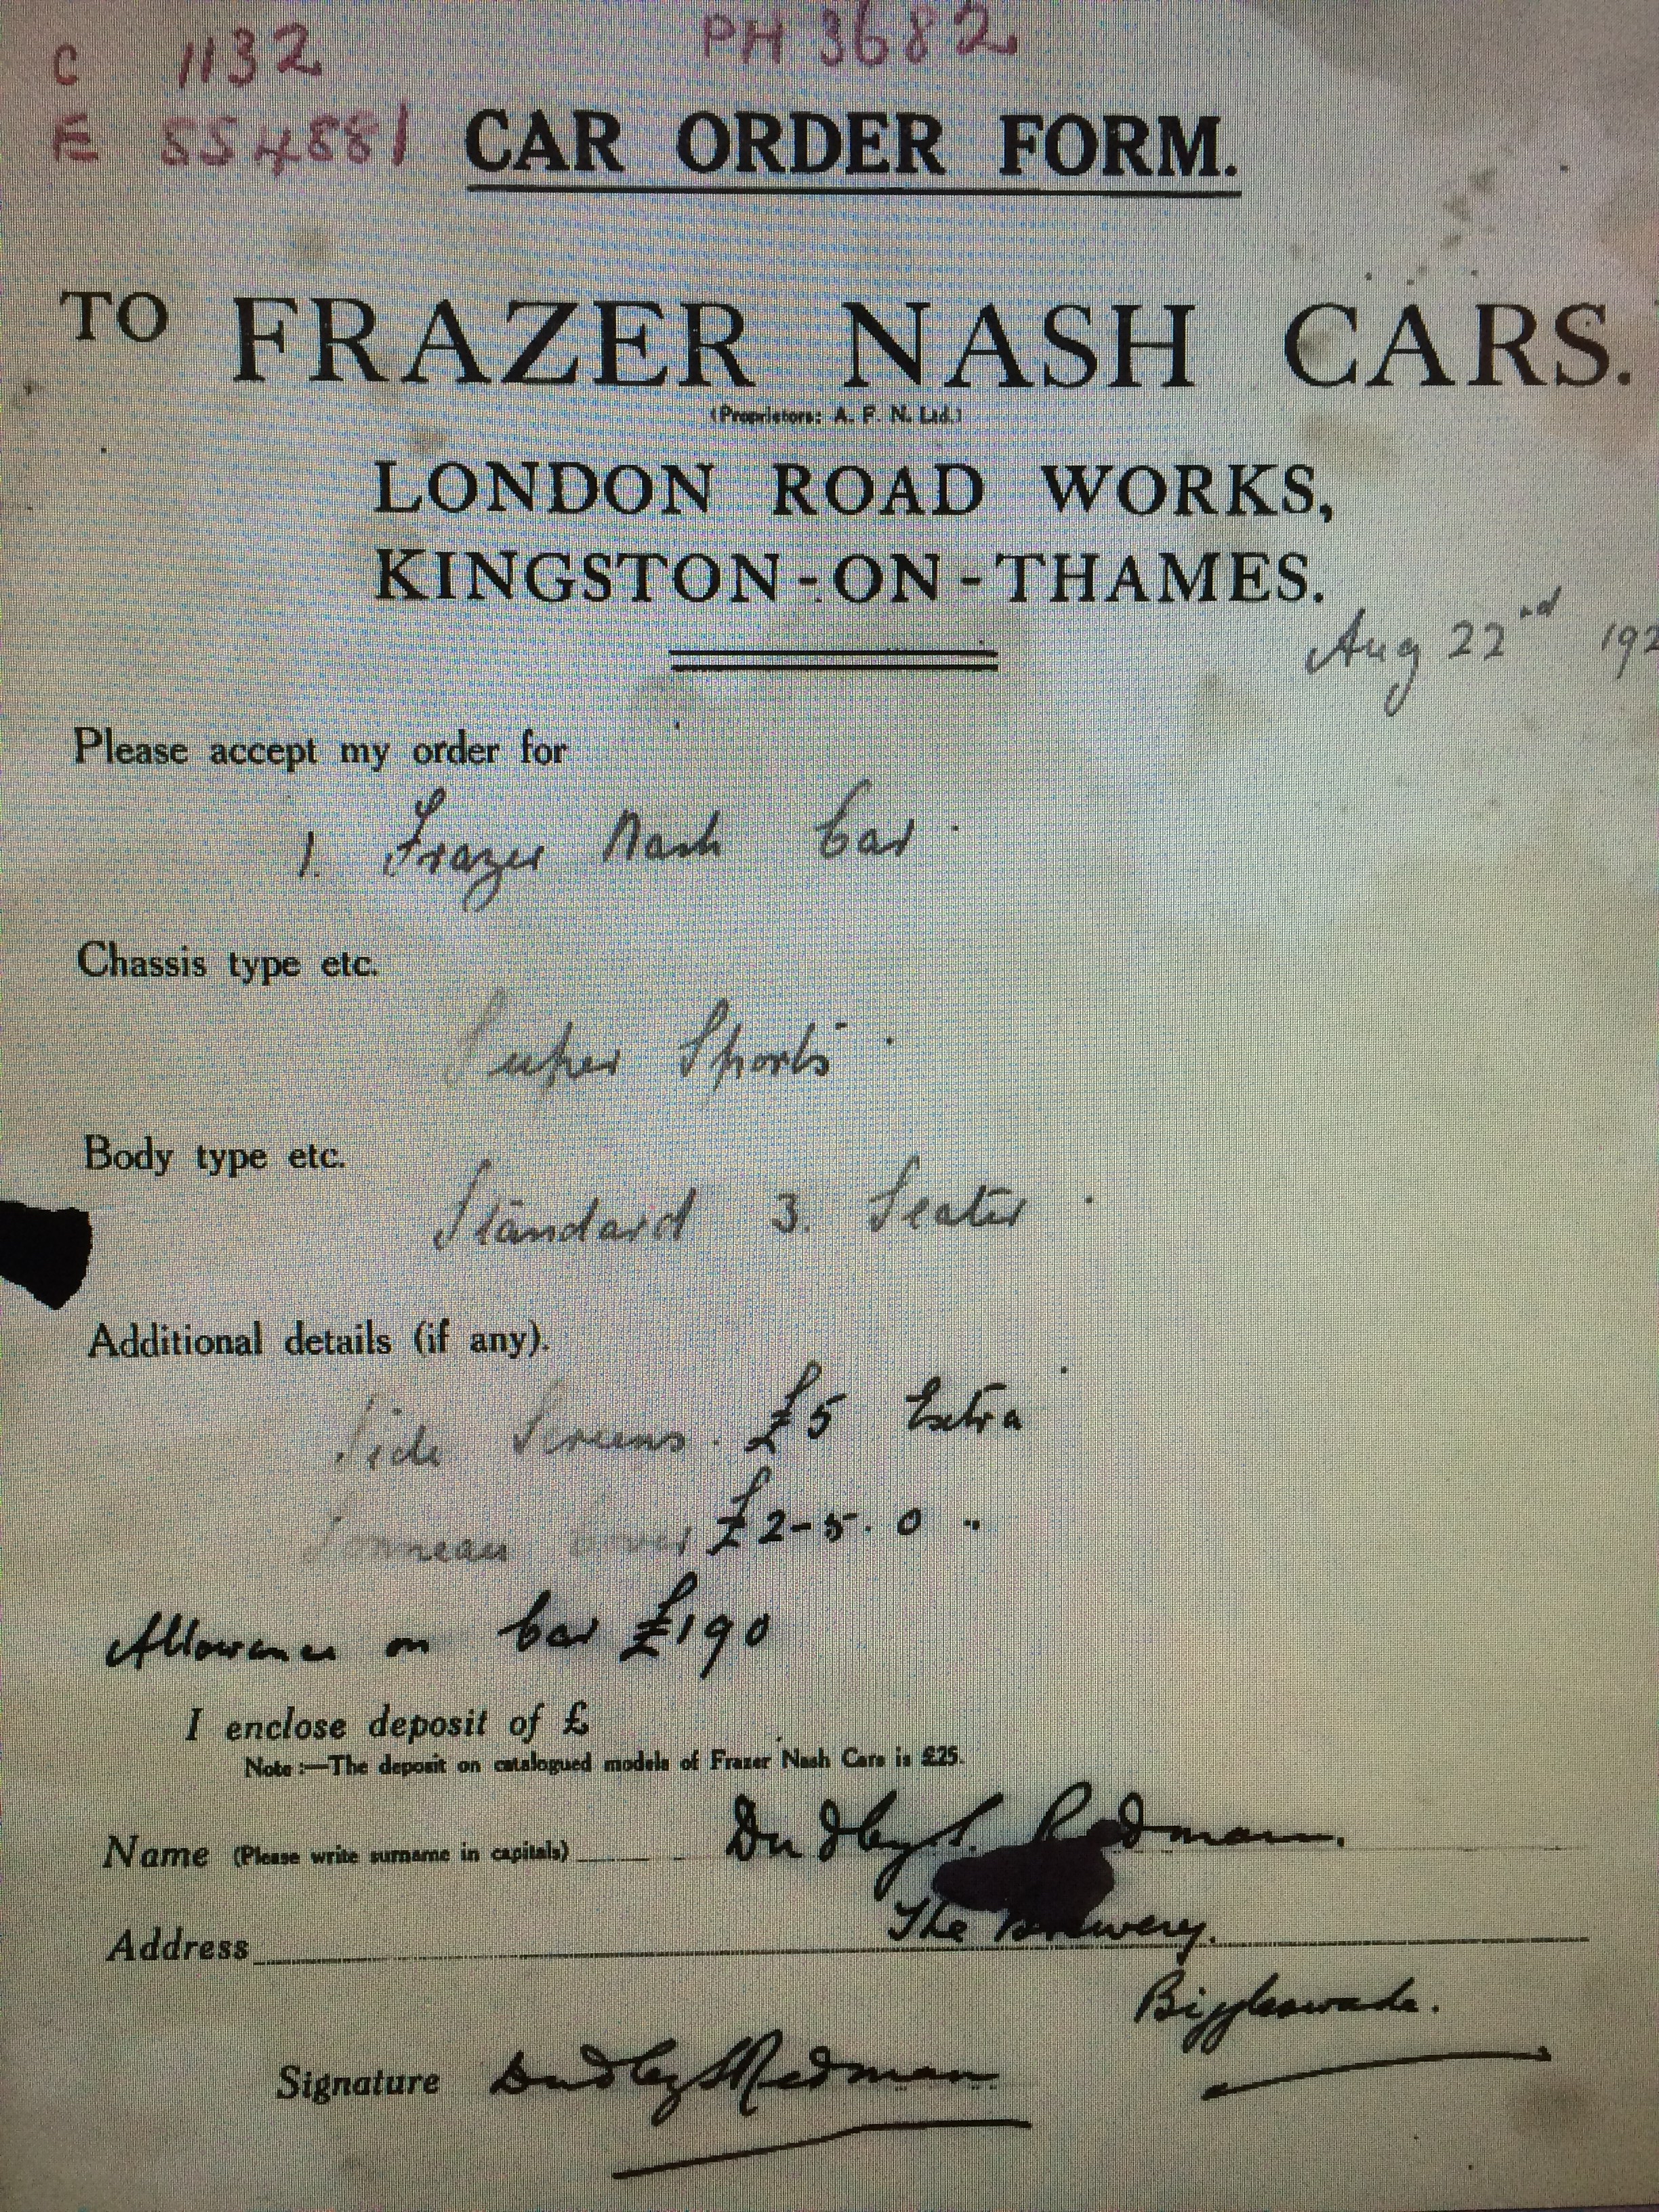 C 1132 PH 3682
E 554881 CAR ORDER FORM.
TO FRAZER NASH CARS.
(Proprietors: A. F. N. Ltd.)
LONDON ROAD WORKS,
KINGSTON-ON-THAMES.
Aug 22nd 192
Please accept my order for
1. Frazer Nash Car.
Chassis type etc.
Super Sports.
Body type etc.
Standard 3. Seater.
Additional details (if any).
Side Screens. £5 Extra
Tonneau cover £2-5.0 "
Allowance on Car £190
I enclose deposit of £
Note:—The deposit on catalogued models of Frazer Nash Cars is £25.
Name (Please write surname in capitals) Dudley S. Redman.
Address The Brewery.
Biggleswade.
Signature Dudley S Redman